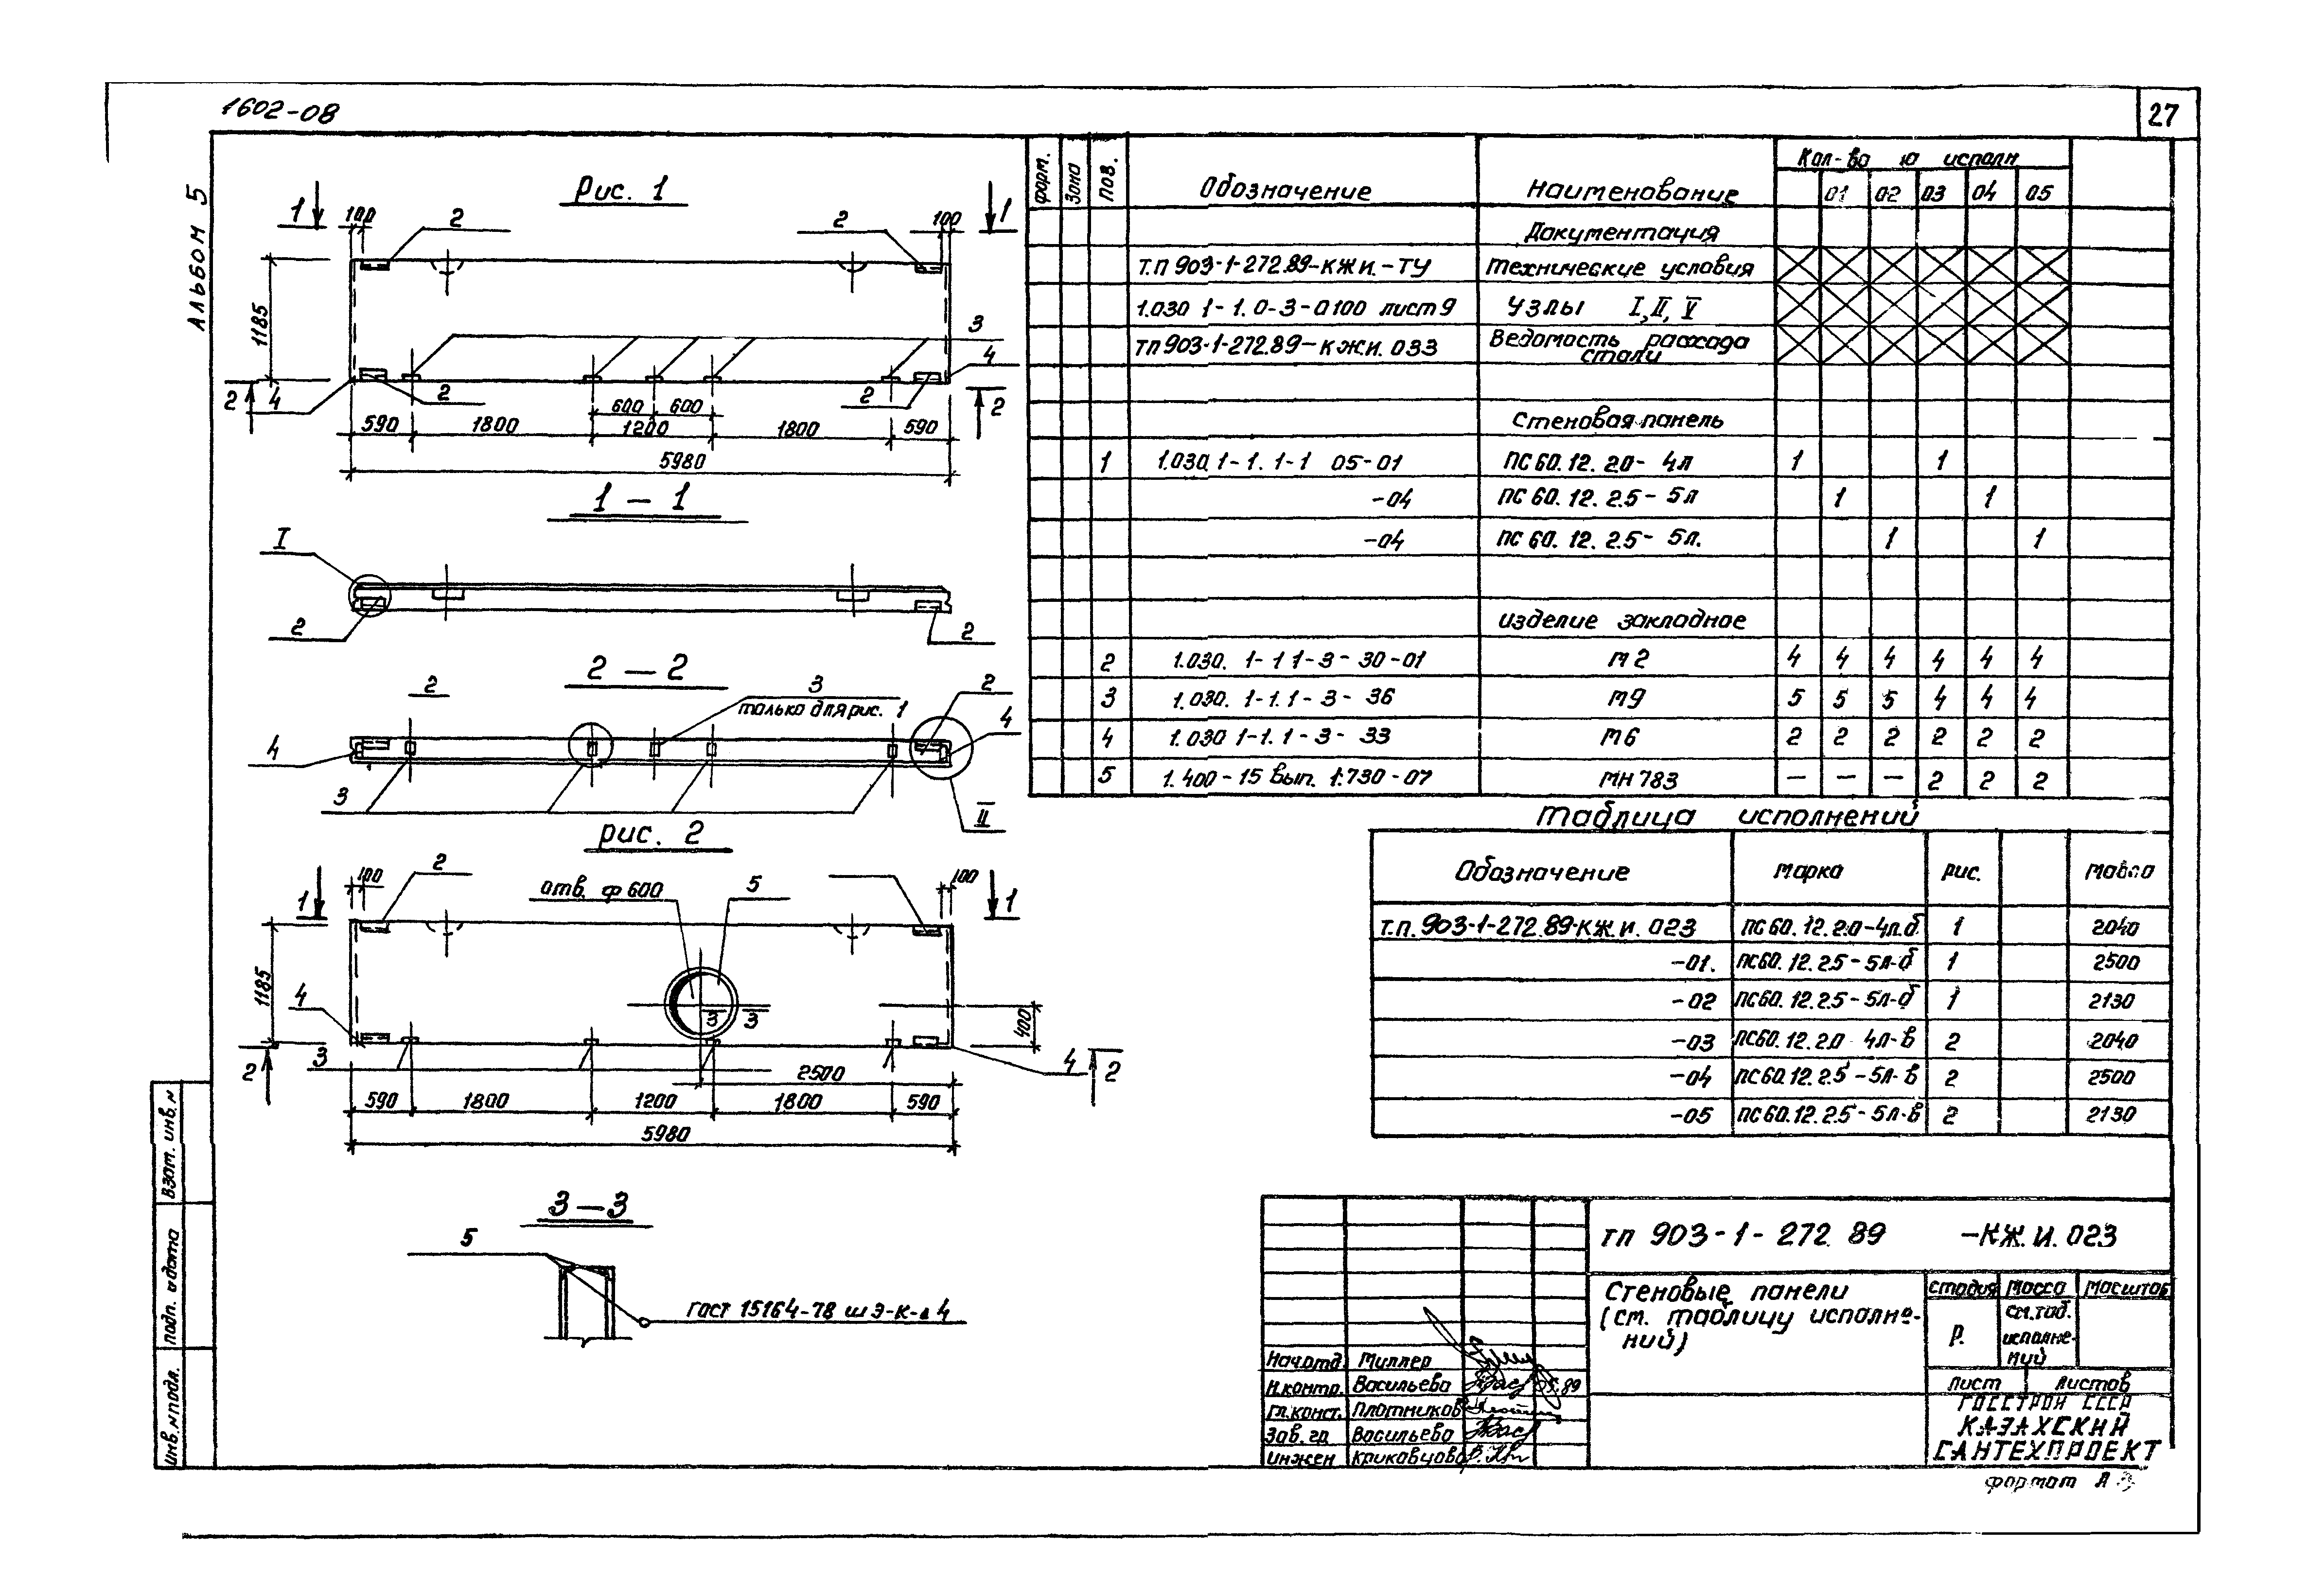 1602-08
27
АЛЬБОМ 5
Рис. 1
1 1
100 2 2 100
1185
3
4
2 4 2 2 2
600 600
590 1800 1200 1800 590
5980
1 – 1
I
2 2
2 – 2
2 3 2
только для рис. 1
4 4
3
II
рис. 2
100 2 100
1 отв. ф 600 5 1
1185
4
3 3
400
2 3 4 2
2500
590 1800 1200 1800 590
5980
3 – 3
5
ГОСТ 15164-78 ш Э-К-△ 4
форм. Зона поз. Обозначение Наименование Кол-во исполн
01 02 03 04 05
Документация
Т.П 903-1-272.89-КЖИ.-ТУ Технические условия
1.030 1-1. 0-3-0100 лист 9 Узлы I, II, V
ТП 903-1-272.89-КЖ.И. 033 Ведомость расхода
стали
Стеновая панель
1 1.030 1-1. 1-1 05-01 ПС 60. 12. 2.0- 4л 1 1
-04 ПС 60. 12. 2.5- 5л 1 1
-04 ПС 60. 12. 2.5- 5л. 1 1
изделие закладное
2 1.030. 1-1 1-3-30-01 М2 4 4 4 4 4 4
3 1.030. 1-1. 1-3-36 М9 5 5 5 4 4 4
4 1.030 1-1. 1-3-33 М6 2 2 2 2 2 2
5 1.400-15 вып. 1.730-07 МН 783 – – – 2 2 2
Таблица исполнений
Обозначение Марка Рис.
Т.П. 903-1-272.89-КЖ.И. 023 ПС60. 12. 2.0-4л.б 1 2040
-01. ПС60. 12. 2.5-5л-б 1 2500
-02 ПС60. 12. 2.5-5л-б 1 2130
-03 ПС60. 12. 2.0 4л-в 2 2040
-04 ПС60. 12. 2.5-5л-в 2 2500
-05 ПС60. 12. 2.5-5л-в 2 2130
ТП 903-1-272 89 -КЖ.И. 023
Стеновые панели
(см. таблицу исполне-
ний)
Стадия Масса Масштаб
Р. см. таб.
исполне-
ний
Лист Листов
ГОССТРОЙ СССР
КАЗАХСКИЙ
САНТЕХПРОЕКТ
Нач.отд. Миллер
Н.контр. Васильева 05.89
Гл.конст. Плотников
Зав. гр Васильева
инжен Криковцова
формат А3
Взам. инв. №
Подп. и дата
Инв. № подл.